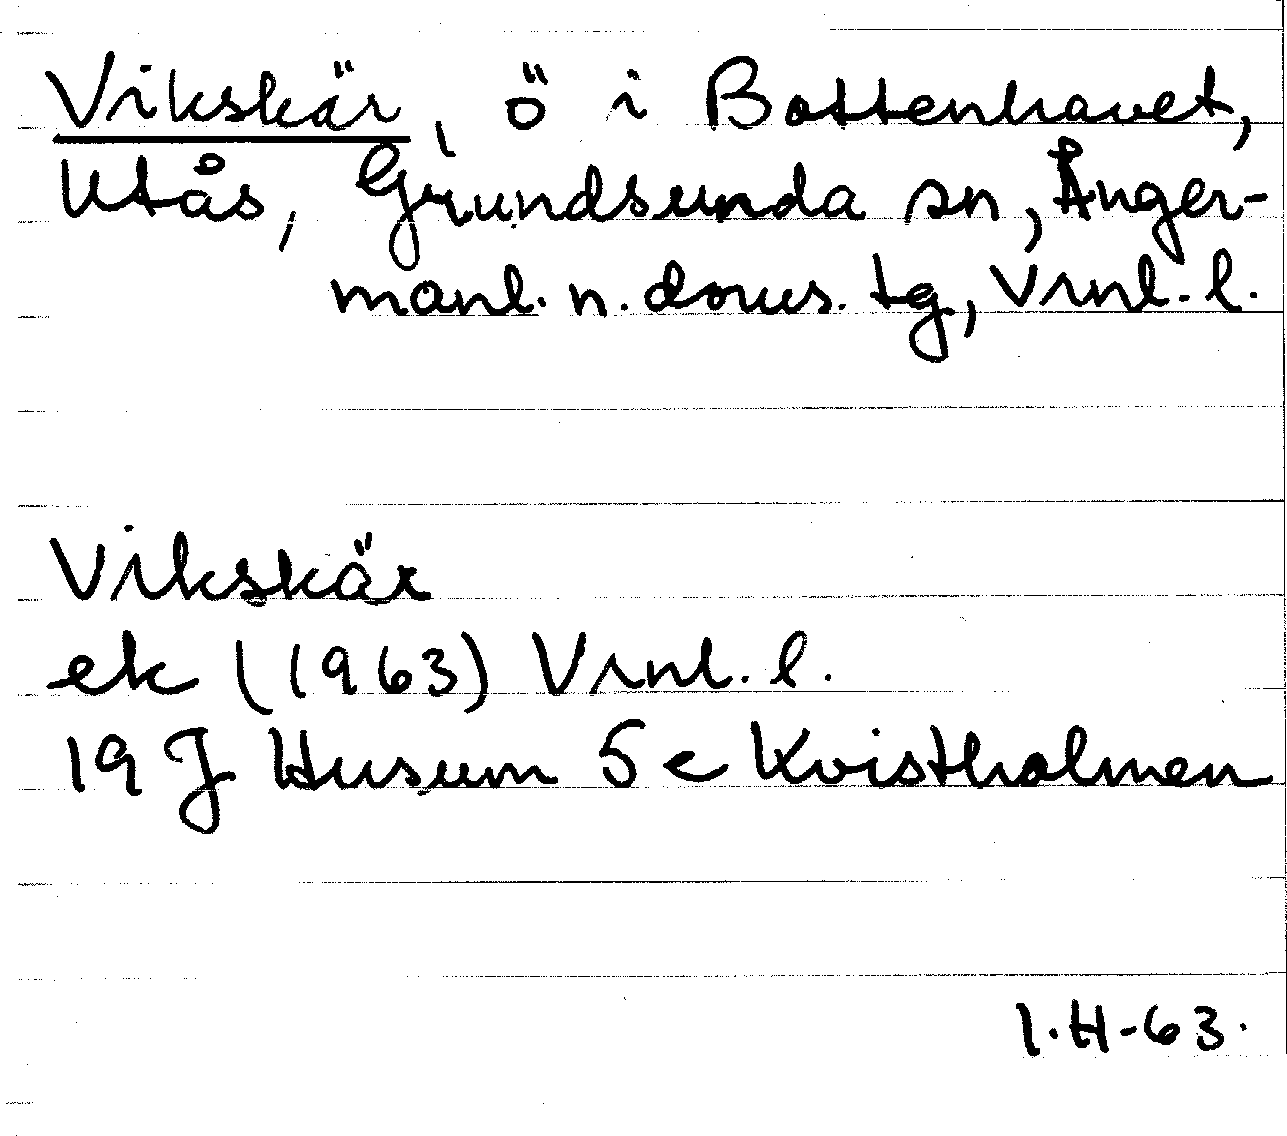 Vikskär, ö i Bottenhavet,
Utås, Grundsunda sn, Ånger-
manl. n. doms. tg, Vrnl. l.
Vikskär
ek (1963) Vrnl. l.
19 J Husum 5 c Kvistholmen
I.H-63.